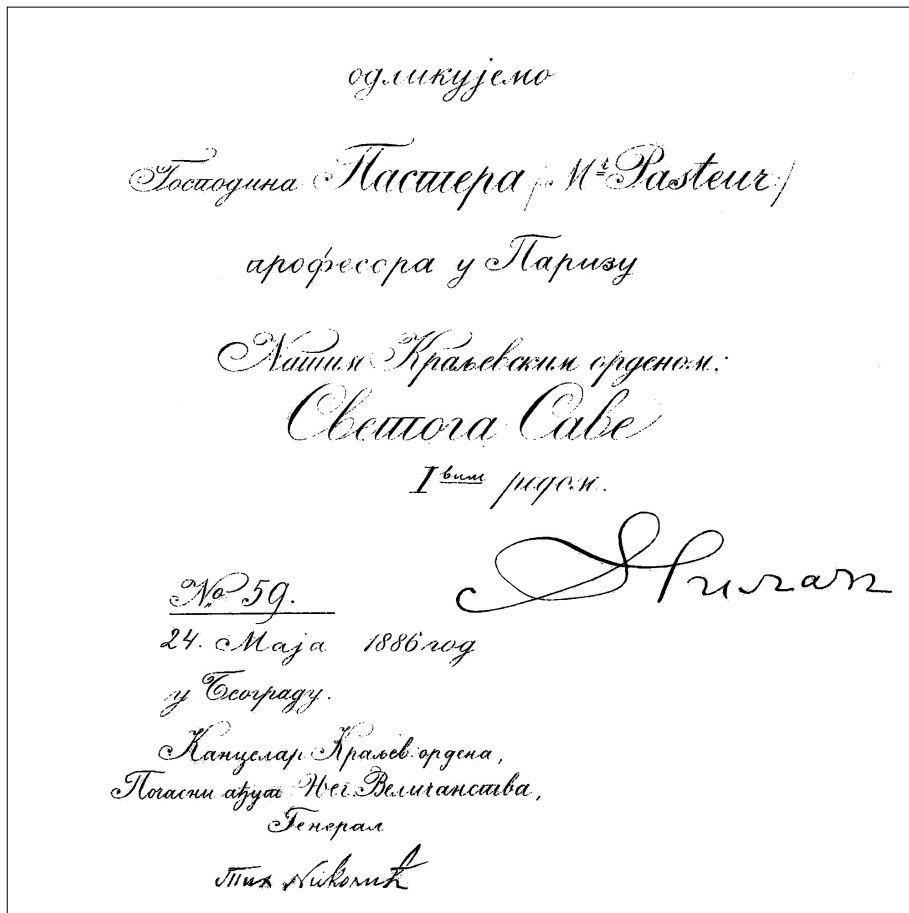 одликујемо
Господина Пастера /: Mr Pasteur :/
професора у Паризу
Нашим Краљевским орденом:
Светога Саве
I вим редом.
Милан
№ 59.
24. Маја 1886 год
у Београду.
Канцелар Краљев. ордена,
Почасни ађут. Њег. Величанства,
Генерал
Тих Николић